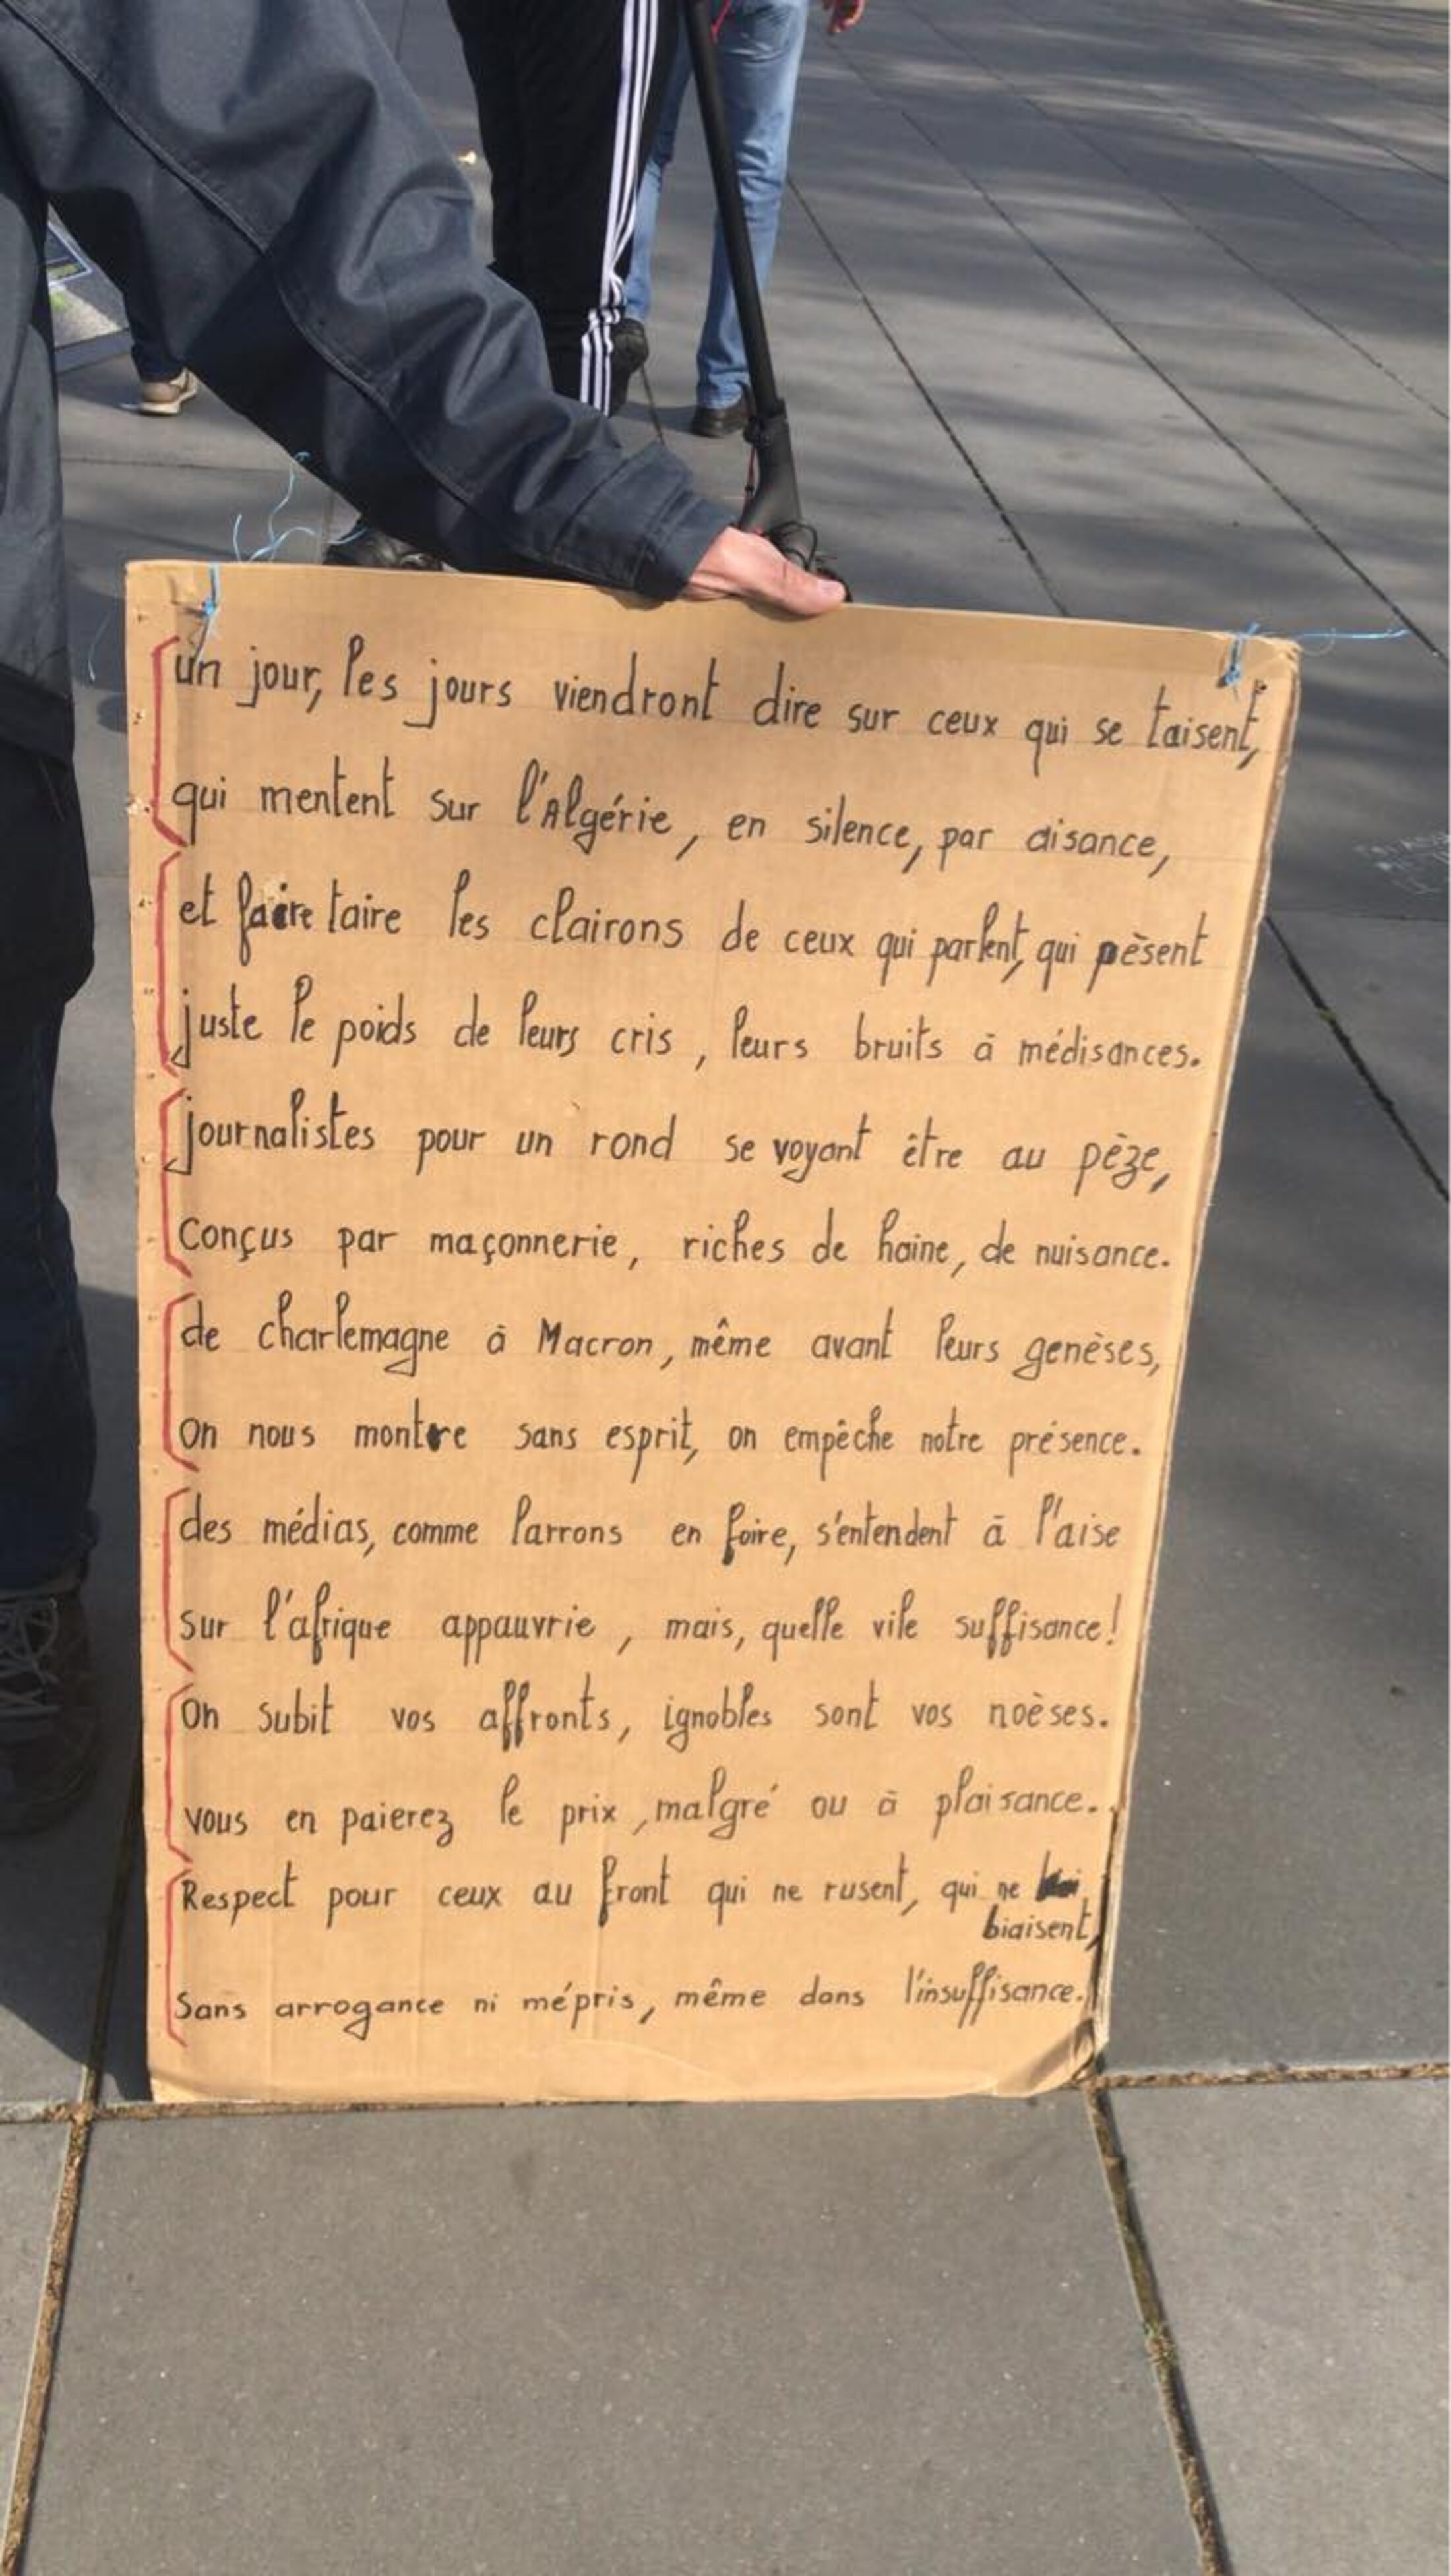 un jour, les jours viendront dire sur ceux qui se taisent,
qui mentent sur l'Algérie, en silence, par aisance,
et faire taire les clairons de ceux qui parlent, qui pèsent
juste le poids de leurs cris, leurs bruits à médisances.
journalistes pour un rond se voyant être au pèze,
conçus par maçonnerie, riches de haine, de nuisance.
de charlemagne à Macron, même avant leurs genèses,
on nous montre sans esprit, on empêche notre présence.
des médias, comme larrons en foire, s'entendent à l'aise
sur l'afrique appauvrie, mais, quelle vile suffisance!
On subit vos affronts, ignobles sont vos noèses.
vous en paierez le prix, malgré ou à plaisance.
Respect pour ceux au front qui ne rusent, qui ne
biaisent,
Sans arrogance ni mépris, même dans l'insuffisance.